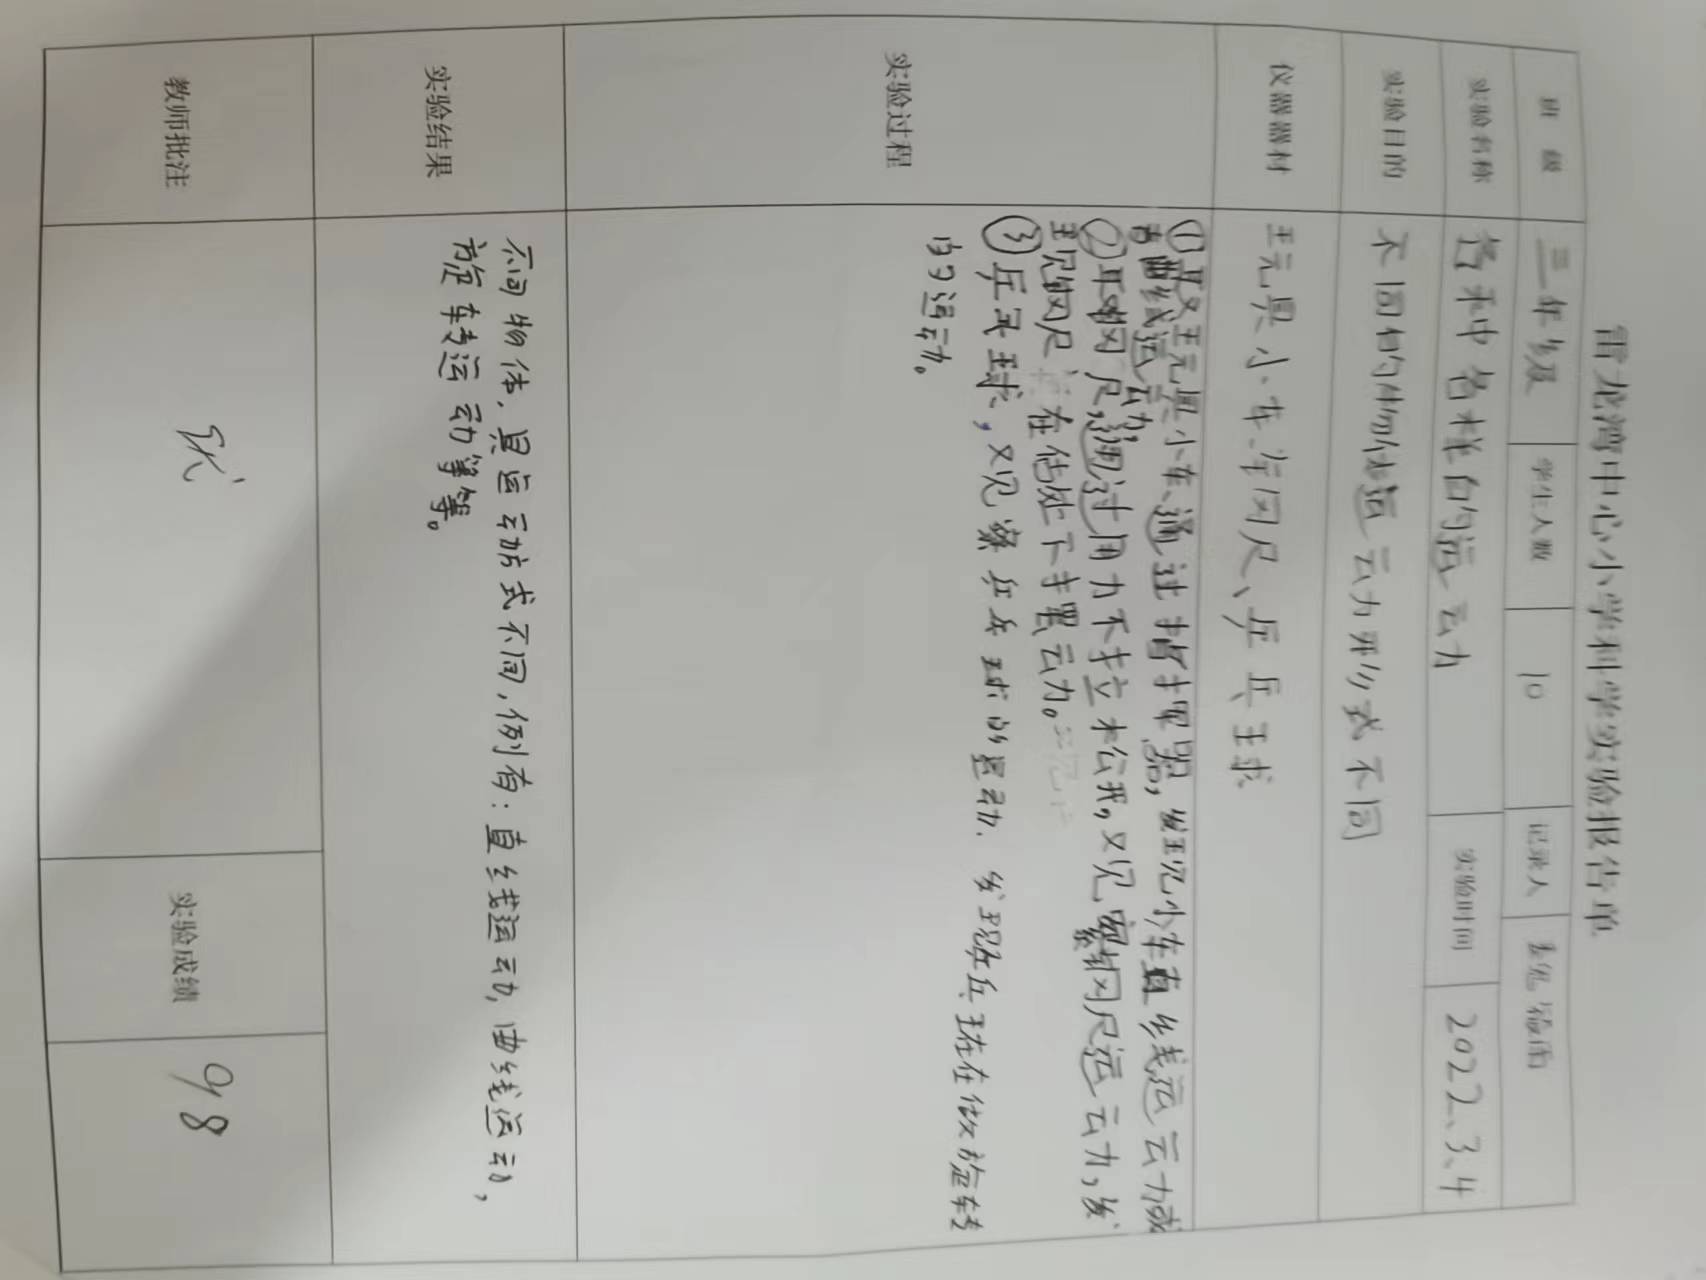 雷龙湾中心小学科学实验报告单
班 级 三年级 学生人数 10 记录人
实验名称 各种各样的运动 实验时间 2022、3、4
实验目的 不同的物体运动形式不同
仪器器材 玩具小车、钢尺、乒乓球
实验过程
①取玩具小车、通过 指挥器，发现小车直线运动或
者曲线运动，
②取钢尺，通过用力不拉 松开，观察钢尺运动，发
现钢尺 在 处下摆动。
③乒乓球，观察乒乓球的运动、发现乒乓球在做旋转
的运动。
实验结果 不同物体，其运动方式不同，例有：直线运动，曲线运动，
旋转运动等等。
教师批注 实验成绩 98